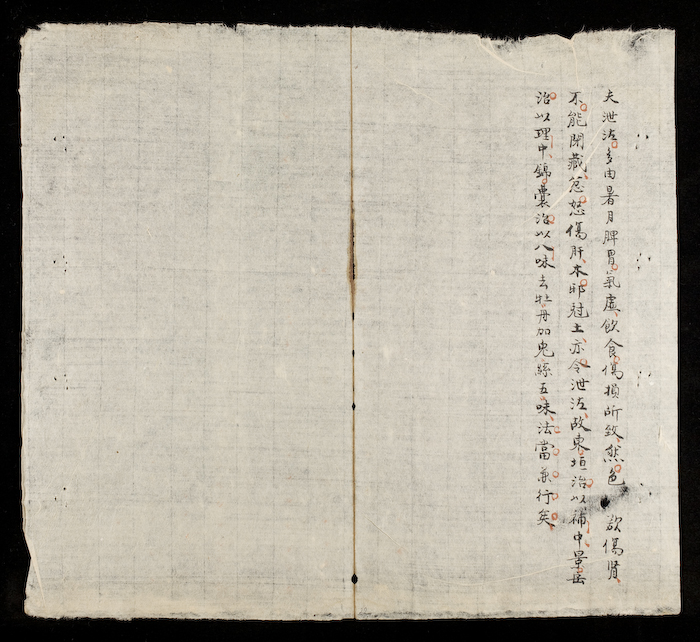 夫泄泻多由暑月脾胃氣虛飲食傷損所致然色欲傷腎
不能閉藏忿怒傷肝木邪尅土亦令泄泻故東垣治以補中景岳
治以理中錦囊治以八味去牡丹加兔絲五味法當兼行矣